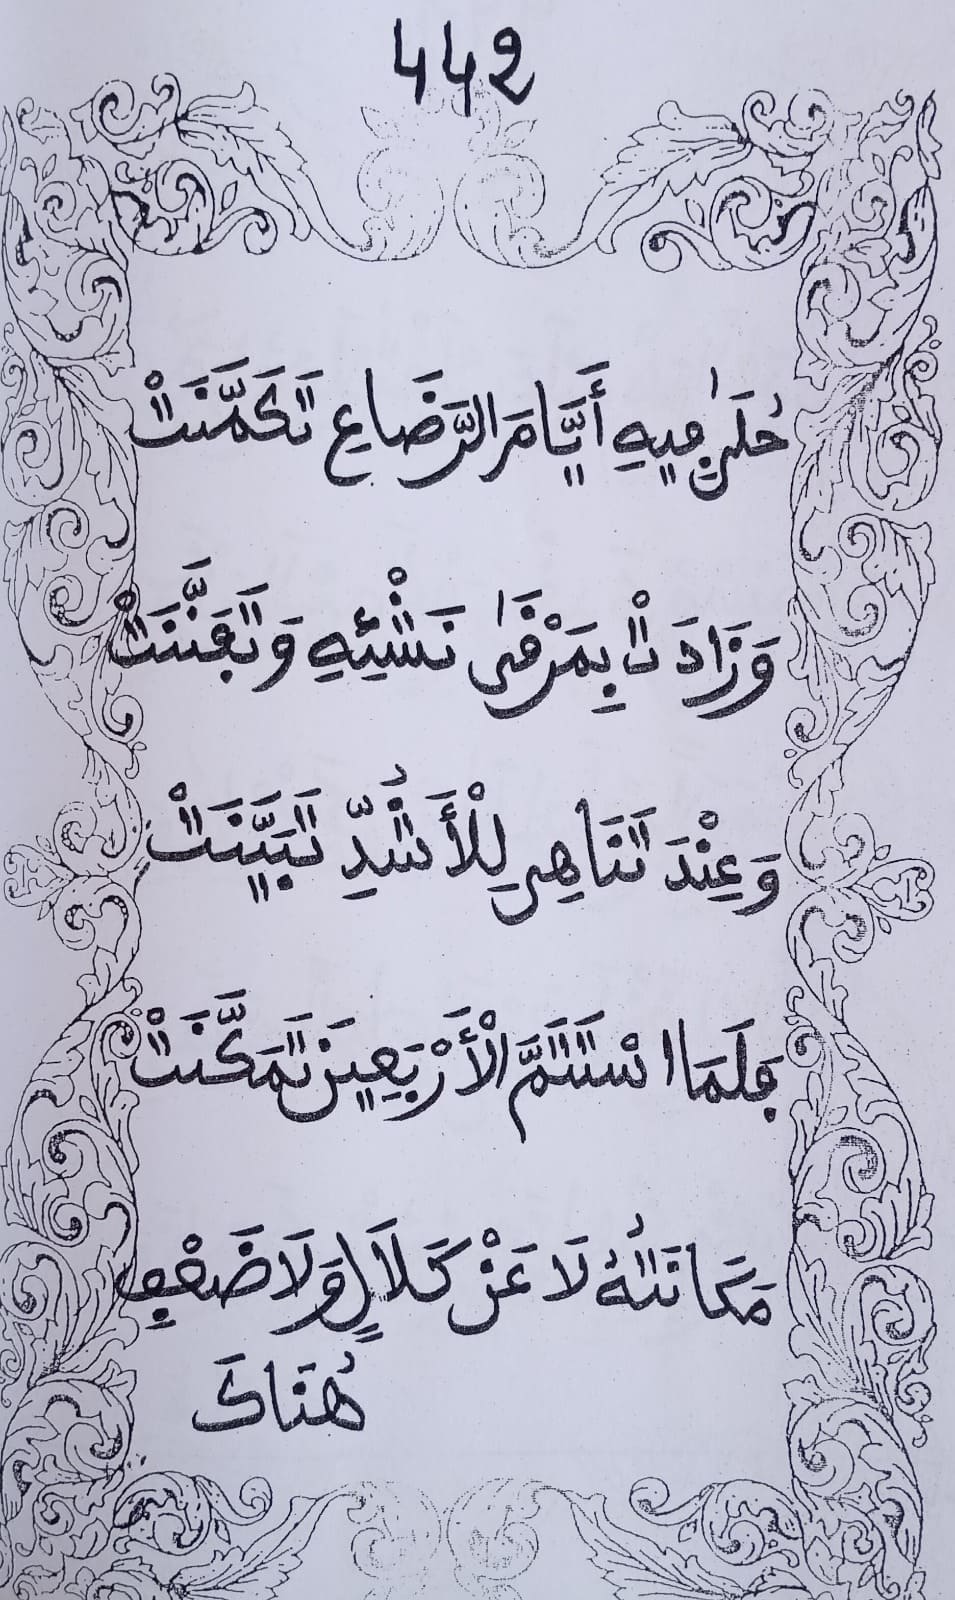 442
حُلَىٰ فِيهِ أَيَّامَ الرَّضَاعِ تَكَمَّنَتْ
وَزَادَتْ بِمَرْقَىٰ نَشْئِهِ وَتَفَنَّنَتْ
وَعِنْدَ تَنَاهِي لِلْأَشُدِّ تَبَيَّنَتْ
فَلَمَا اسْتَتَمَّ الْأَرْبَعِينَ تَمَكَّنَتْ
مَكَانَتُهُ لَا عَنْ كَلَالٍ وَلَا ضَعْفِ
هُنَاكَ